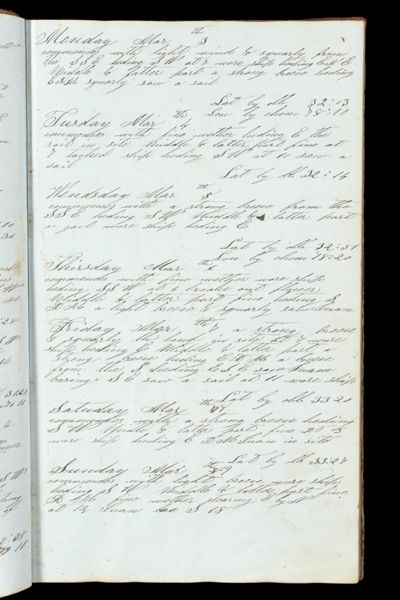 Monday Mar 3th
commences with light wind & squarly from
the S S E heding S W at 7 wore ship heding E
Middle & latter part a strong breeze heding
squarly saw a sail
Lat by ob 32:03
Lon by chom 78:10
Tuesday Mar th
commences with fine wether heding E the
sail in site Middle & latter part fine at
7 tacked ship heding S W at 10 saw a
sail
Lat by ob 32:14
Wendsday Mar th
commences with a strong breeze from the
S S E heding S W Middle & latter part
a gail wore ship heding E
Lat by ob 32:51
Lon by chom 78:20
Thursday Mar th
commences with fine wether wore ship
heding S S W at 5 breake out flower
Middle & latter part fine heding
a light breeze & squarly saw Juan
Friday Mar th a strong breeze
& squarly the land in site at 7 wore
ship heding E Middle & latter part
strong breeze heding a breeze
from the S heding E S E saw Juan
baring S E saw a sail at 11 wore ship
Lat by ob 33:20
Saturday Mar th
commences with a strong breeze heding
S W Middle & latter part fine at 8
wore ship heding E Juan in site
Lat by ob 33:27
Sunday Mar th 9
commences with light breeze wore ship
heding S W Middle & latter part fine
fine wether stearing E by N
at 12 Juan S 15